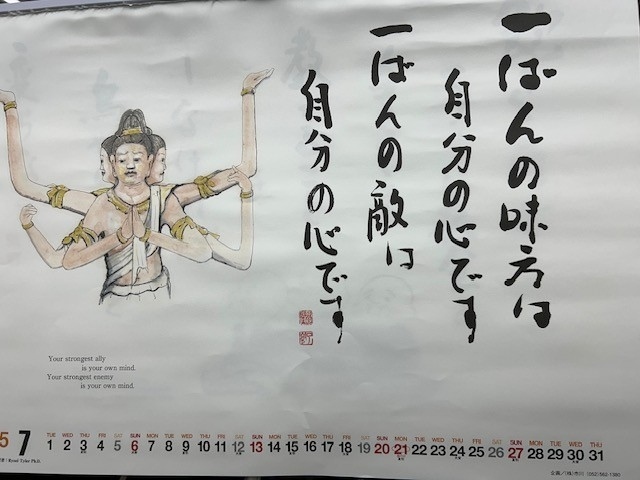 一ばんの味方は
自分の心です
一ばんの敵は
自分の心です
Your strongest ally
is your own mind.
Your strongest enemy
is your own mind.
5 7
TUE WED THU FRI SAT SUN MON TUE WED THU FRI SAT SUN MON TUE WED THU FRI SAT SUN MON TUE WED THU FRI SAT SUN MON TUE WED THU
1 2 3 4 5 6 7 8 9 10 11 12 13 14 15 16 17 18 19 20 21 22 23 24 25 26 27 28 29 30 31
Royal Tyler Ph.D.